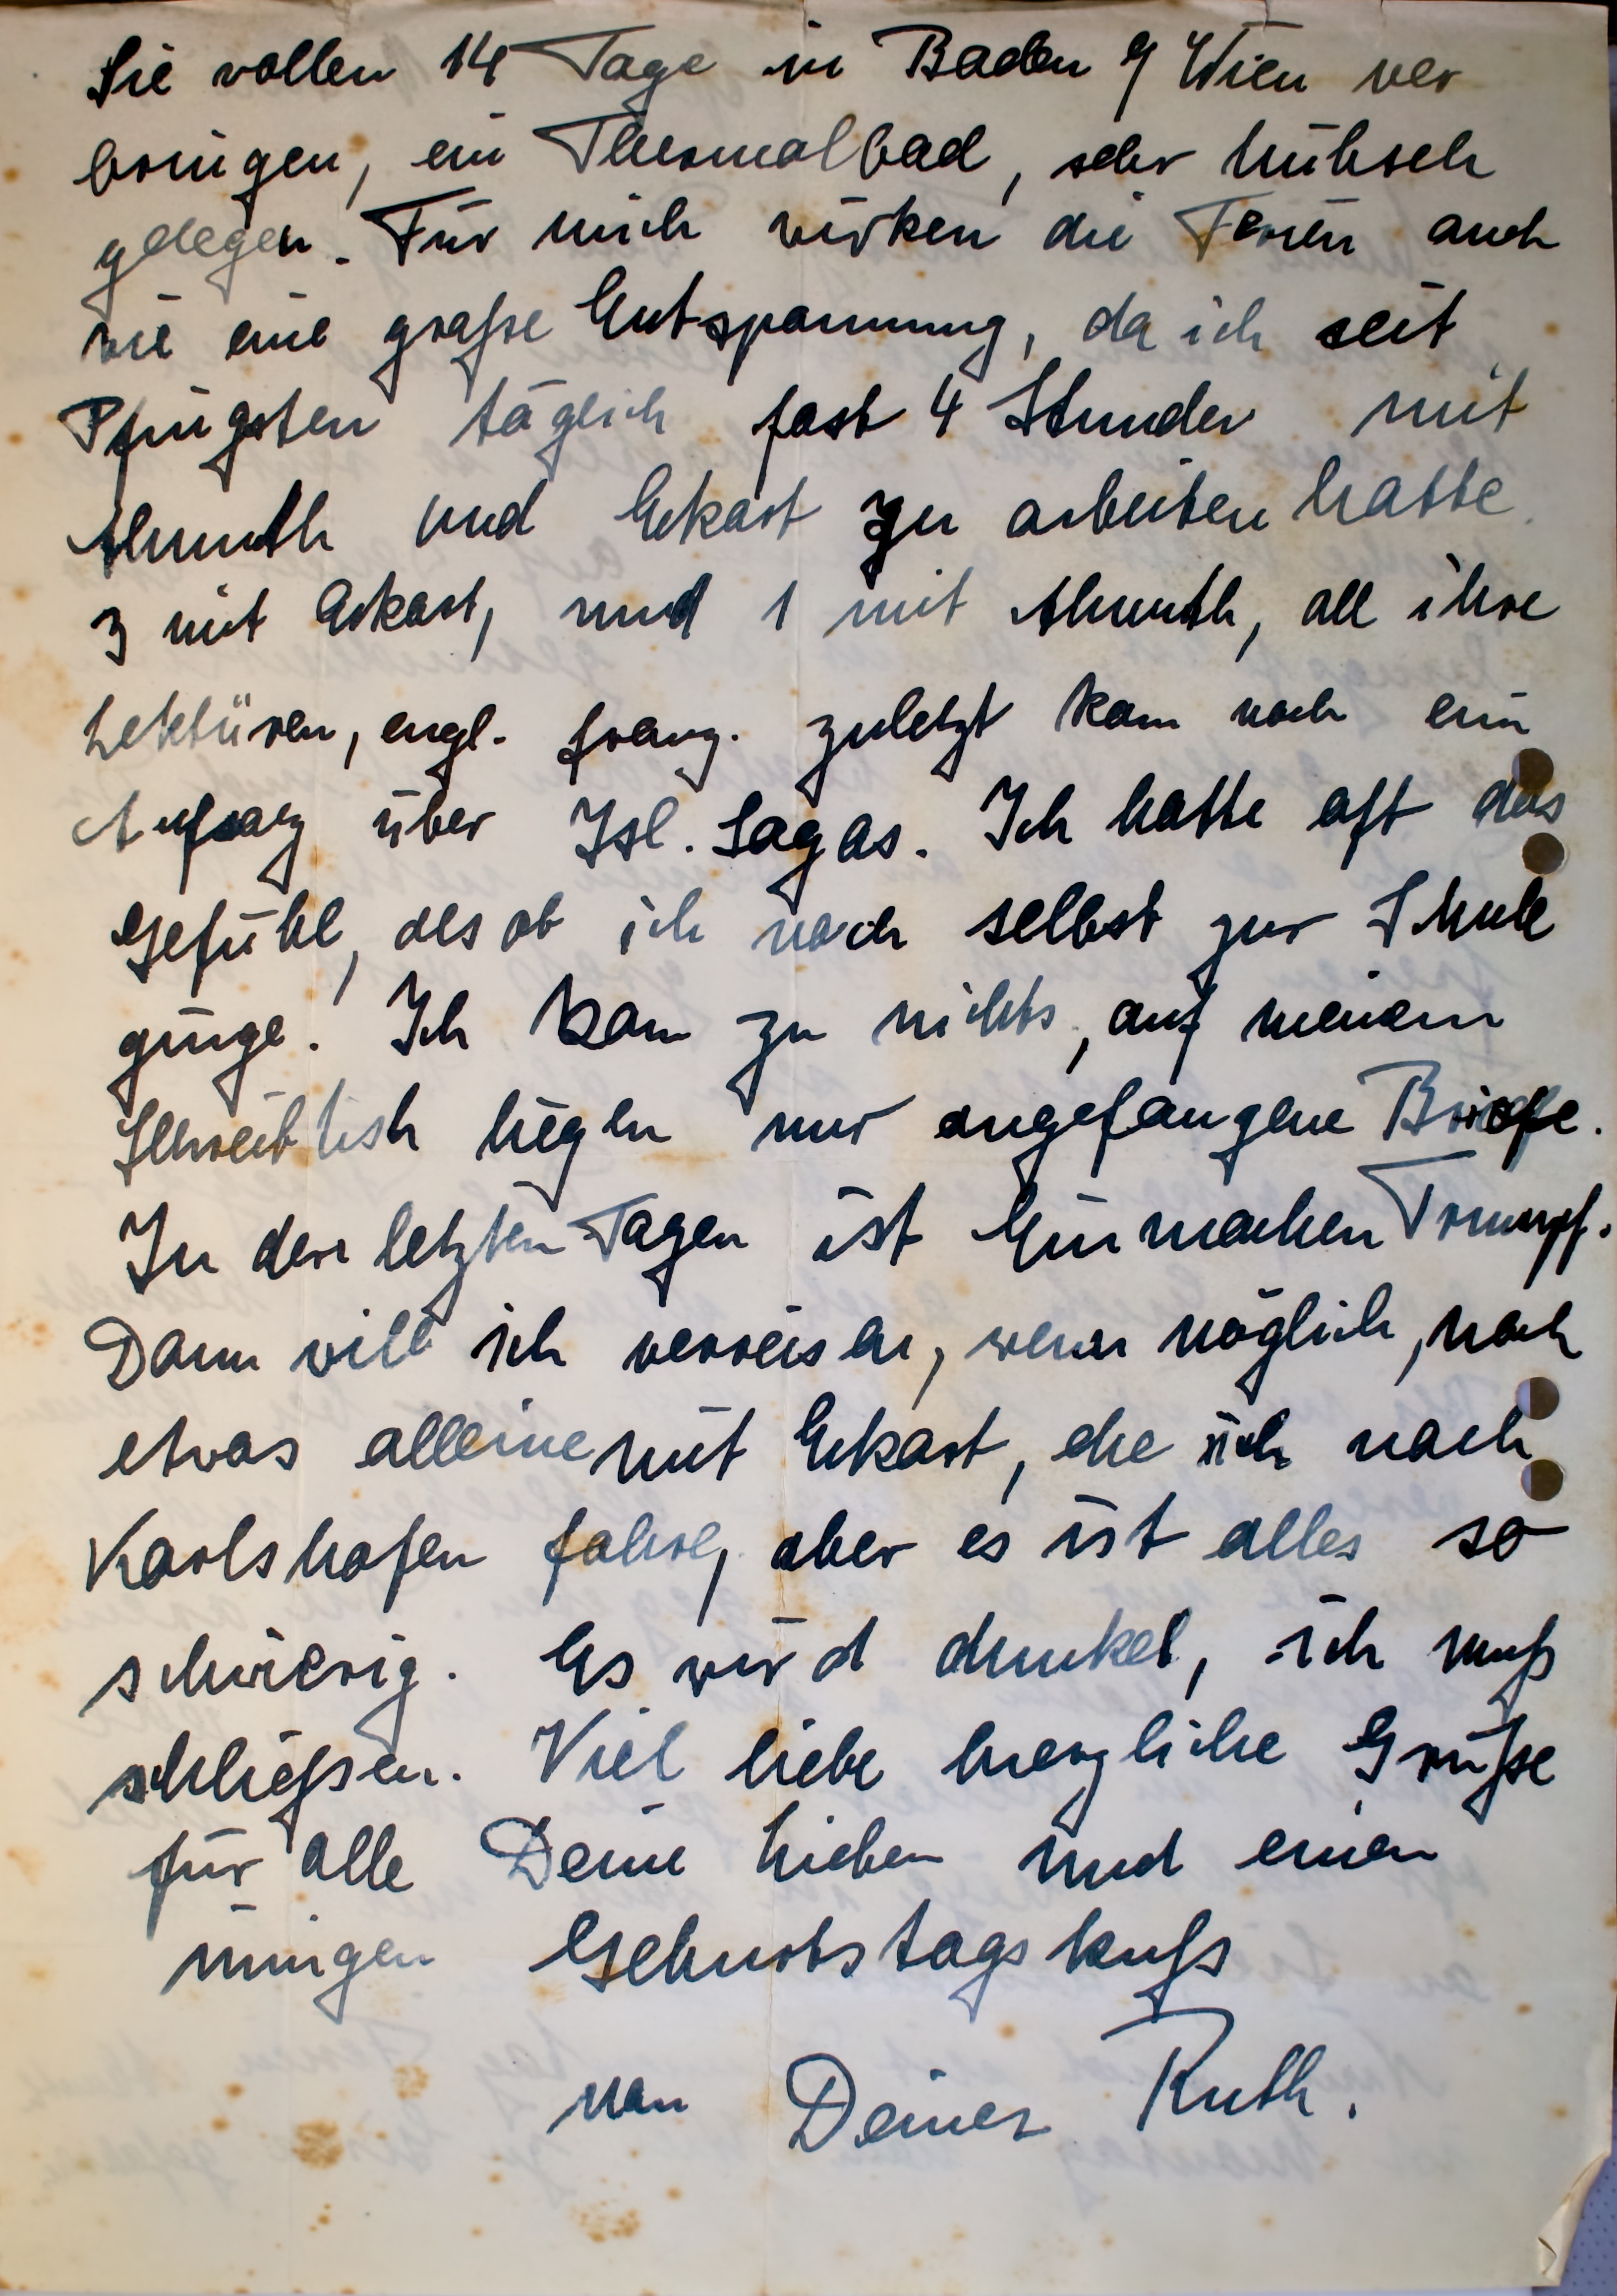 Sie wollen 14 Tage in Baden b/ Wien ver
bringen, ein Thermalbad, sehr hübsch
gelegen. Für mich wirken die Ferien auch
wie eine große Entspannung, da ich seit
Pfingsten täglich fast 4 Stunden mit
Almuth und Eckart zu arbeiten hatte.
3 mit Eckart, und 1 mit Almuth, all ihre
Lektüren, engl. franz. zuletzt kam noch ein
Aufsatz über Isl. Sagas. Ich hatte oft das
Gefühl, als ob ich noch selbst zur Schule
ginge. Ich kam zu nichts, auf meinem
Schreibtisch liegen nur angefangene Briefe.
In den letzten Tagen ist Einmachen Trumpf.
Dann will ich verreisen, wenn möglich, noch
etwas alleine mit Eckart, ehe ich nach
Karlshafen fahre, aber es ist alles so
schwierig. Es wird dunkel, ich muß
schließen. Viel liebe herzliche Grüße
für alle Deine Lieben und einen
innigen Geburtstagskuß
von Deiner Ruth.